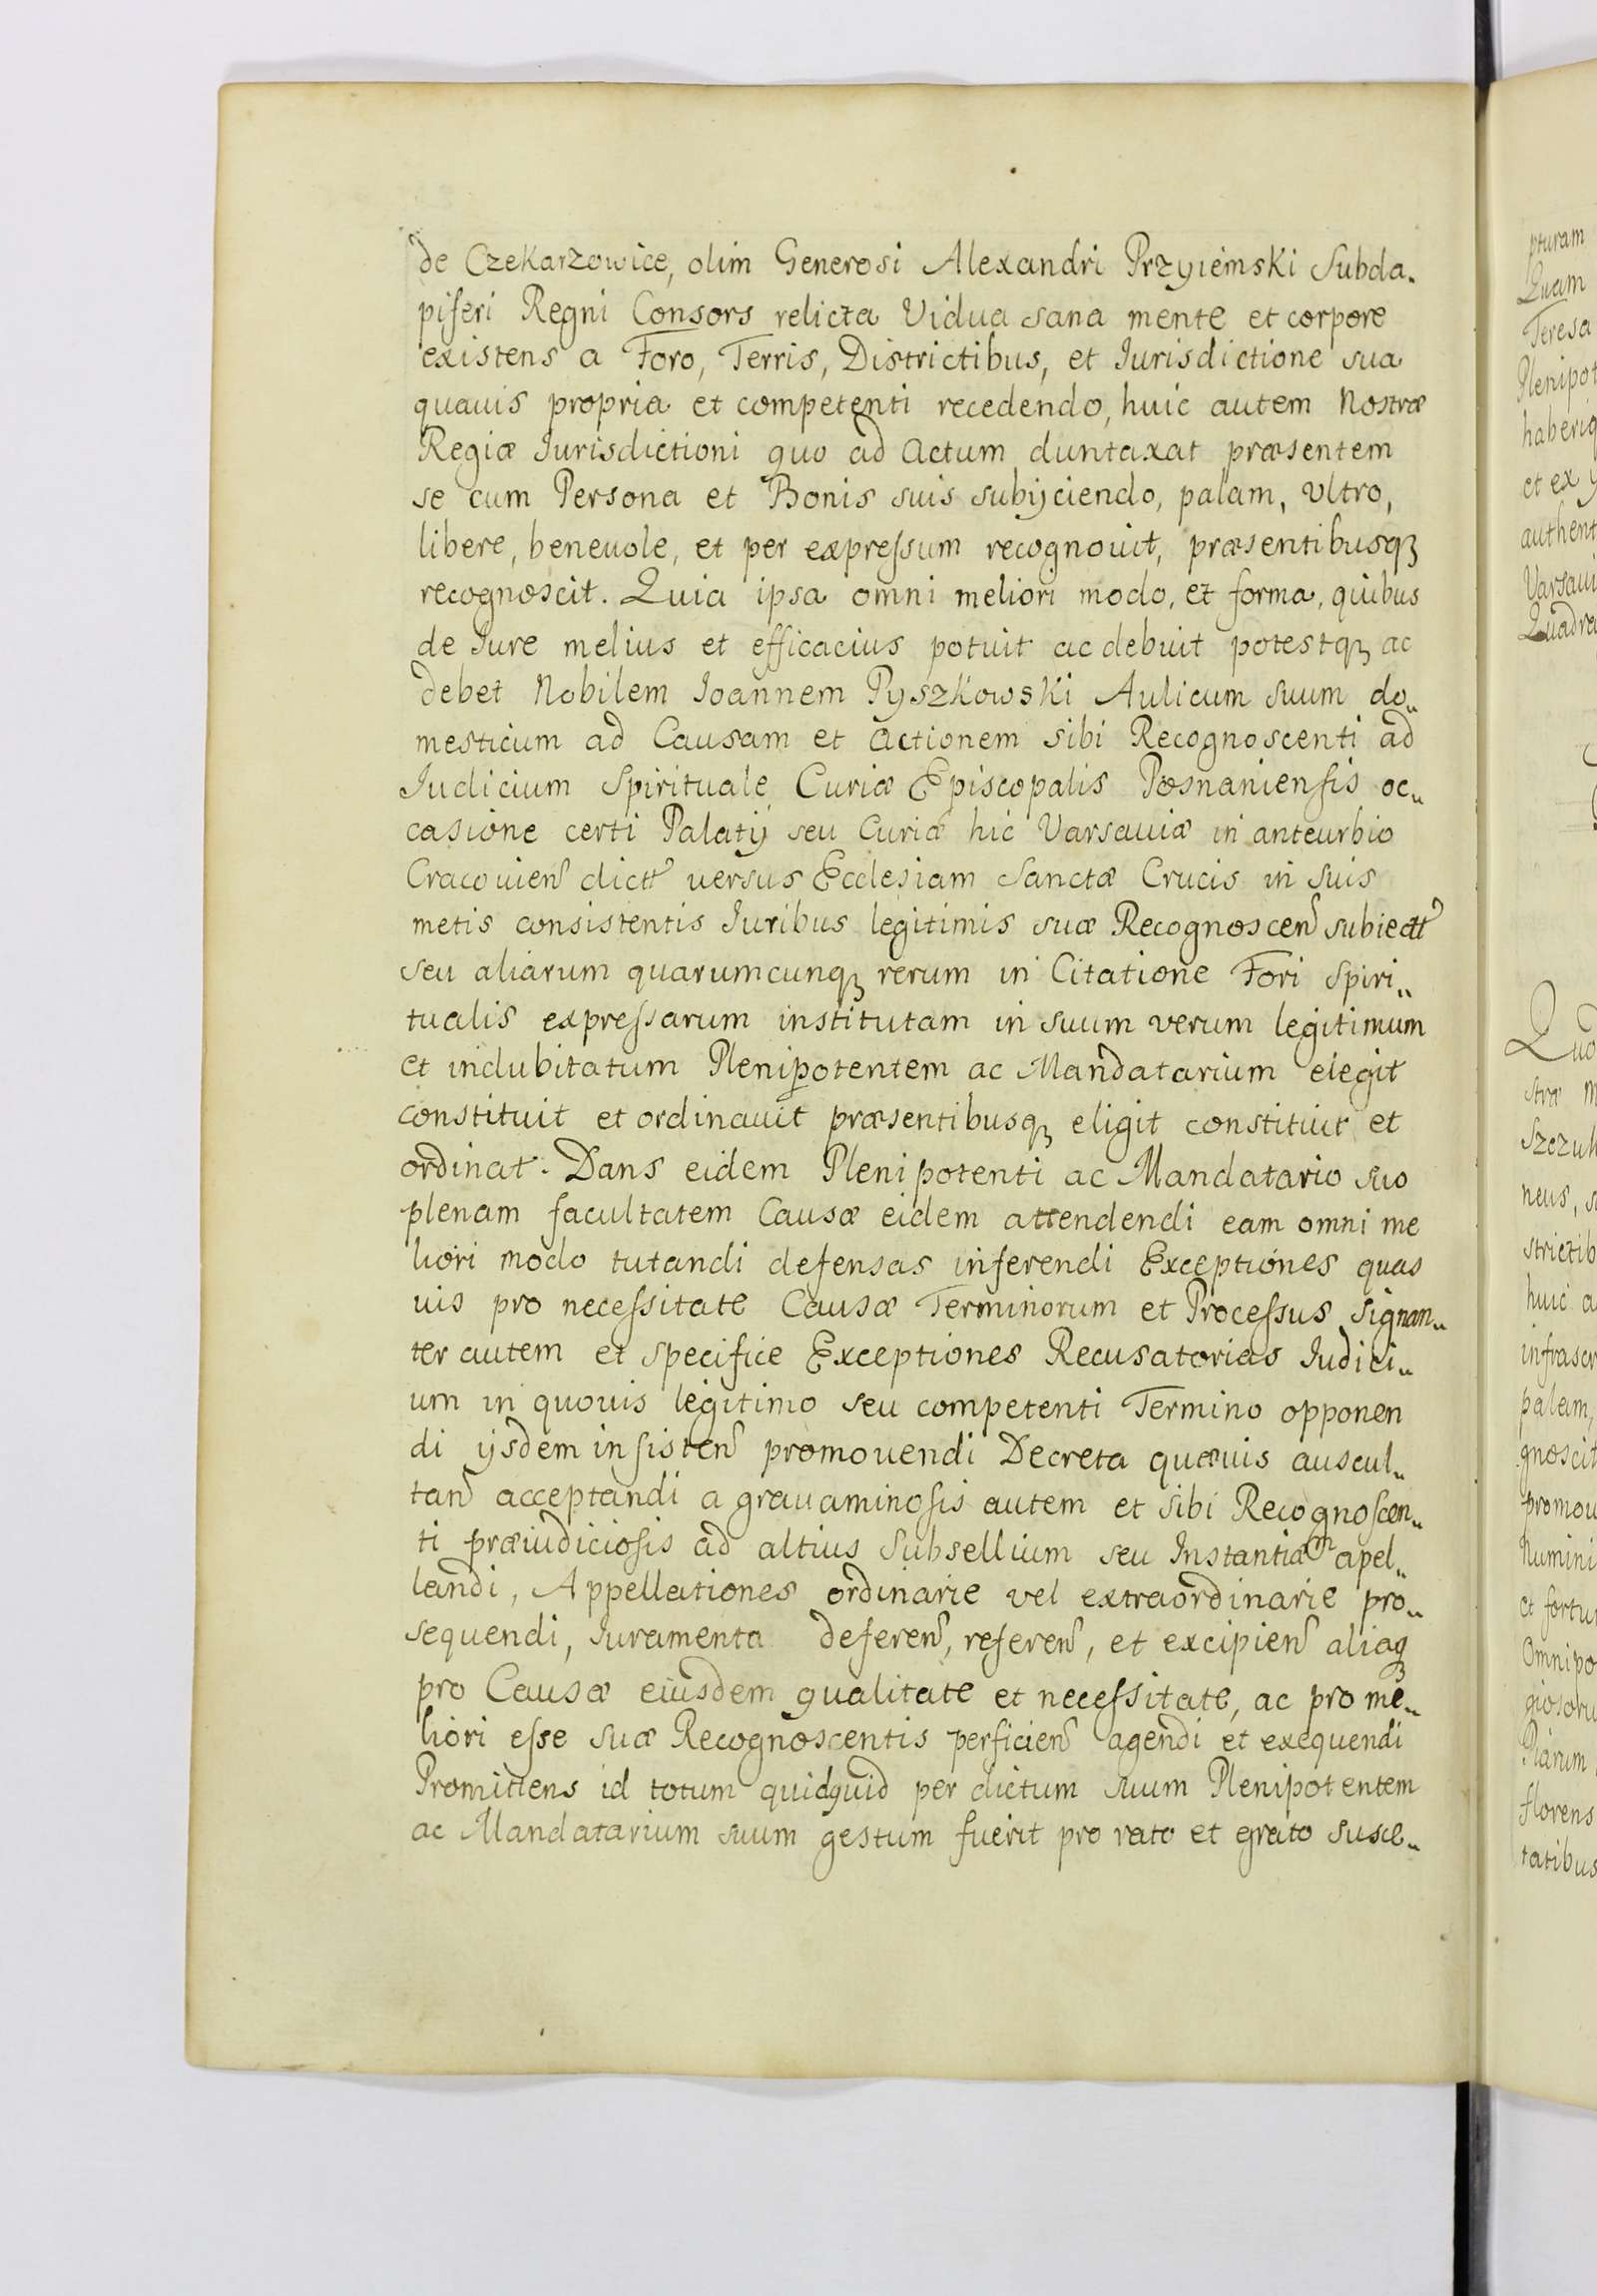 de Czekarzowice, olim Generosi Alexandri Przyiemski Subda-
piferi Regni Consors relicta Vidua sana mente et corpore
existens a Foro, Terris, Districtibus, et Iurisdictione sua
quauis propria et competenti recedendo, huic autem Nostræ
Regiæ Iurisdictioni quo ad Actum duntaxat præsentem
se cum Persona et Bonis suis subijciendo, palam, Vltro,
libere, beneuole, et per expreſsum recognouit, præsentibusqꝫ
recognoscit. Quia ipsa omni meliori modo, et forma, quibus
de Iure melius et efficacius potuit ac debuit potestqꝫ ac
debet Nobilem Ioannem Pyszkowski Aulicum suum do„
mesticum ad Causam et Actionem sibi Recognoscenti ad
Iudicium Spirituale Curiæ Episcopalis Posnanienſis oc„
casione certi Palatij seu Curiæ hic Varsauiæ in anteurbio
Cracouien dictt versus Ecclesiam Sanctæ Crucis in suis
metis consistentis Iuribus legitimis suæ Recognoscen subiectt
seu aliarum quarumcunqꝫ rerum in Citatione Fori Spiri„
tualis expreſsarum institutam in suum verum legitimum
et indubitatum Plenipotentem ac Mandatarium elegit
constituit et ordinauit præsentibusqꝫ eligit constituit et
ordinat. Dans eidem Plenipotenti ac Mandatario suo
plenam facultatem Causæ eidem attendendi eam omni me
liori modo tutandi defensas inferendi Exceptiones quas
uis pro neceſsitate Causæ Terminorum et Proceſsus signan„
ter autem et specifice Exceptiones Recusatorias Iudici„
um in quouis legitimo seu competenti Termino opponen
di ijsdem inſisten promouendi Decreta quæuis auscul„
tan acceptandi a grauaminoſis autem et sibi Recognoſcen„
ti præiudicioſis ad altius Subsellium seu Instantiam apel„
landi, Appellationes ordinarie vel extraordinarie pro„
sequendi, Iuramenta deferen, referen, et excipien aliaqꝫ
pro Causæ eiusdem qualitate et neceſsitate, ac pro me„
liori eſse suæ Recognoscentis perficien agendi et exequendi
Promittens id totum quidquid per dictum suum Plenipotentem
ac Mandatarium suum gestum fuerit pro rato et grato susce„
pturam
Quam
Teresa
Plenipot
haberiq
et ex
authent
Varsaui
Quadra
Quo
stræ m
Szczuk
neus, s
strictib
huic a
infrascr
palam,
gnoscit
promou
Numini
et fortu
Omnipo
giosoru
Piarum
florens
tatibus